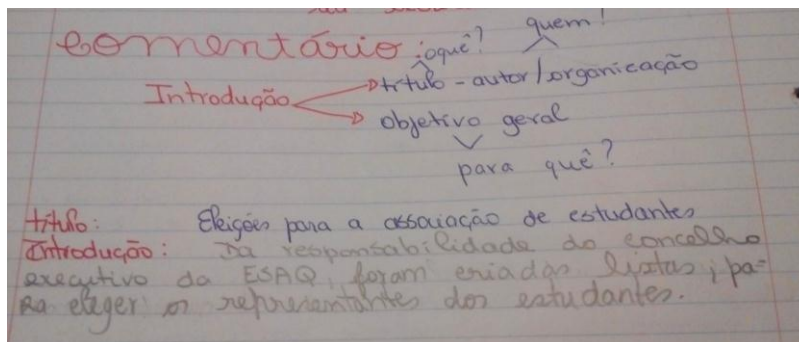 quem?
Comentário: oquê?
título - autor/organicação
Introdução
objetivo geral
para quê?
título: Eleições para a associação de estudantes
Introdução: Da responsabilidade do concelho
executivo da ESAQ, foram criadas listas, pa-
ra eleger os representantes dos estudantes.